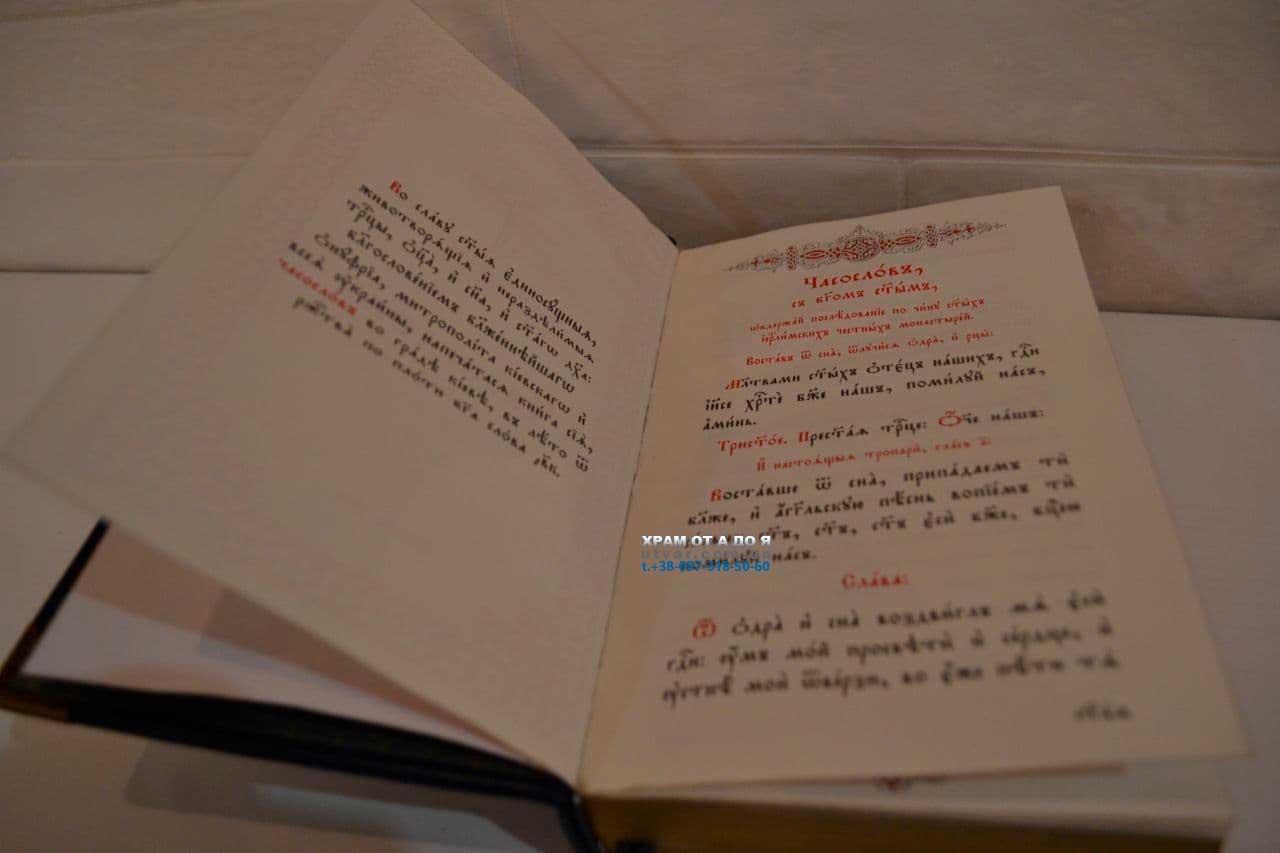 Во сла́вꙋ ст҃ы́ѧ є҆диносꙋ́щныѧ,
животворѧ́щїѧ и҆ неразде́лимыѧ
трⷪ҇цы, ѻ҆ц҃а̀, и҆ сн҃а, и҆ ст҃а́гѡ дх҃а:
бл҃гослове́нїемъ бл҃же́ннѣйшагѡ
ѻ҆нꙋ́фрїа, митрополі́та кі́евскагѡ и҆
всеѧ̀ ᲂу҆краи́ны, напеча́тасѧ кни́га сїѧ̀,
часосло́въ во гра́дѣ кі́евѣ, въ лѣ́то ѿ
ржⷭ҇тва̀ по пло́ти бг҃а сло́ва
Часосло́въ,
съ бг҃омъ ст҃ы́мъ,
ѡ҆держа́й послѣ́дованїе по чи́нꙋ ст҃ы́хъ
і҆ерⷭ҇ли́мскихъ че́стныхъ монастыре́й.
Воста́въ ѿ сна̀, ѿлꙋчи́сѧ ѻ҆дра̀, и҆ рцы̀:
Мл҃твами ст҃ы́хъ ѻ҆те́цъ на́шихъ, гдⷭ҇и
і҆и҃се хрⷭ҇тѐ бж҃е на́шъ, поми́лꙋй на́съ,
а҆ми́нь.
Трист҃о́е. Прест҃а́ѧ трⷪ҇це: Ѻ҆́ч҃е на́шъ:
И҆ настоѧ́щыѧ тропари̑, гла́съ а҃
Воста́вше ѿ сна̀, припа́даемъ тѝ
бл҃же, и҆ а҆́гг҃льскꙋю пѣ́снь вопїе́мъ тѝ
ст҃ъ, ст҃ъ, ст҃ъ є҆сѝ бж҃е, бцⷣею
поми́лꙋй на́съ.
Сла́ва:
Ѿ ѻ҆дра̀ и҆ сна̀ воздви́глъ мѧ̀ є҆сѝ
гдⷭ҇и: ᲂу҆́мъ мо́й просвѣтѝ и҆ се́рдце, и҆
ᲂу҆стнѣ̀ моѝ ѿве́рзи, во є҆́же пѣ́ти тѧ̀
ХРАМ ОТ А ДО Я
utvar.com.ua
t.+38-097-918-50-60